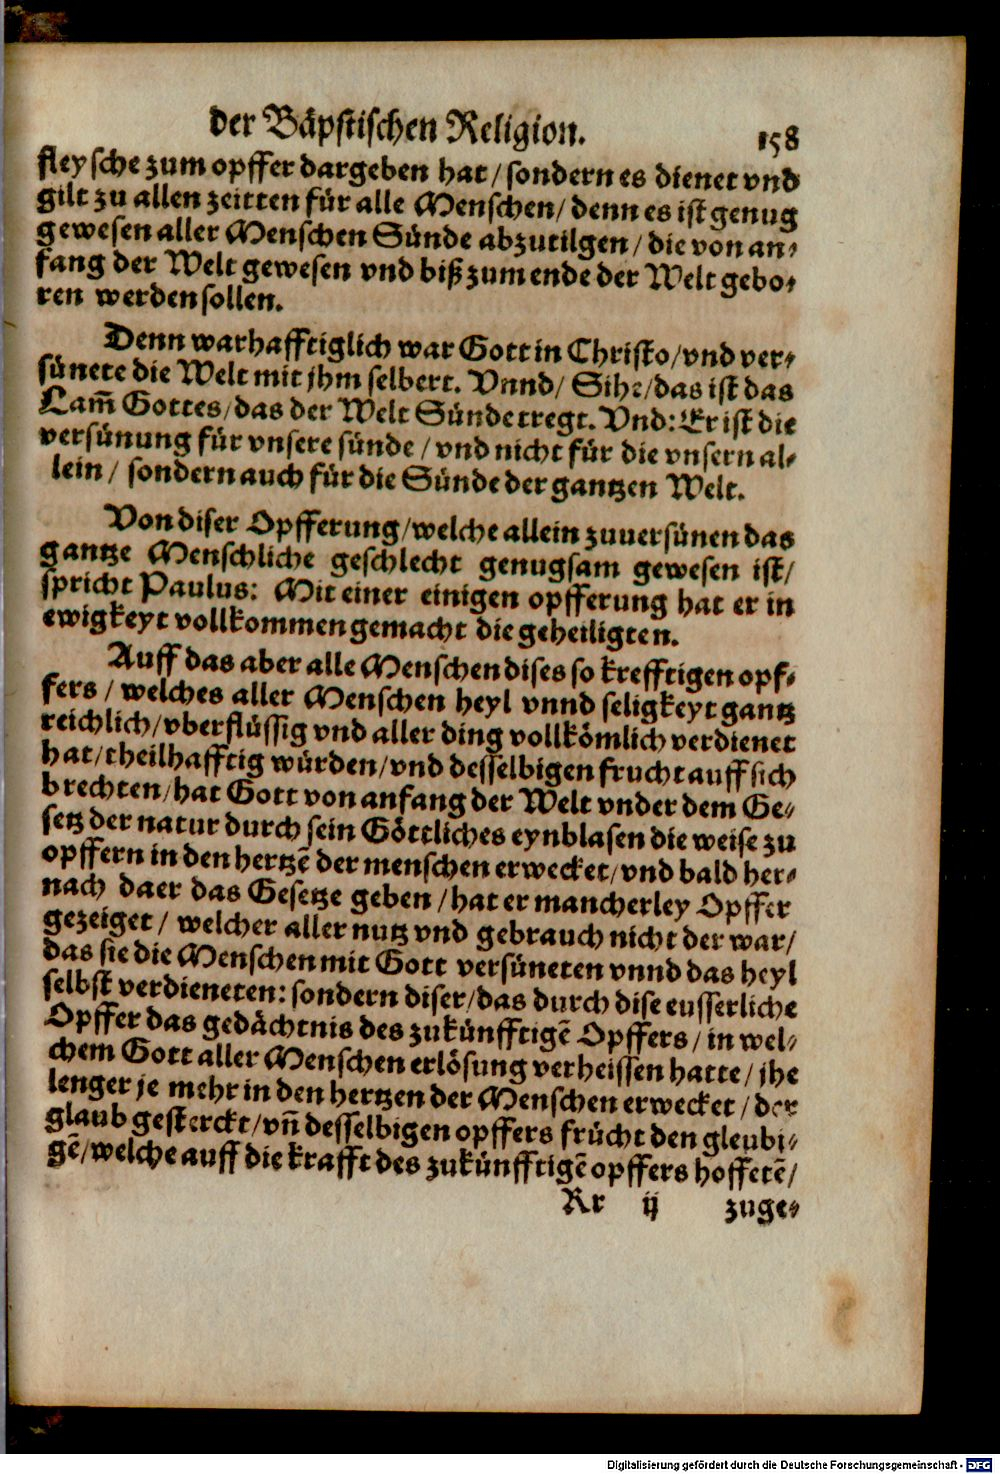 der Bäpstischen Religion. 158
fleysche zum opffer dargeben hat / sondern es dienet vnd
gilt zu allen zeitten für alle Menschen / denn es ist genug
gewesen aller Menschen Sünde abzutilgen / die von an-
fang der Welt gewesen vnd biß zum ende der Welt gebo-
ren werden sollen.
Denn warhafftiglich war Gott in Christo / vnd ver-
sünete die Welt mit jhm selbert. Vnnd / Sihe / das ist das
Lam̃ Gottes / das der Welt Sünde tregt. Vnd: Er ist die
versünung für vnsere sünde / vnd nicht für die vnsern al-
lein / sondern auch für die Sünde der gantzen Welt.
Von diser Opfferung / welche allein zuuersünen das
gantze Menschliche geschlecht genugsam gewesen ist /
spricht Paulus: Mit einer einigen opfferung hat er in
ewigkeyt vollkommen gemacht die geheiligten.
Auff das aber alle Menschen dises so krefftigen opf-
fers / welches aller Menschen heyl vnnd seligkeyt gantz
reichlich / vberflüssig vnd aller ding vollkömlich verdienet
hat / theilhafftig würden / vnd desselbigen frucht auff sich
brechten / hat Gott von anfang der Welt vnder dem Ge-
setz der natur durch sein Göttliches eynblasen die weise zu
opffern in den hertzẽ der menschen erwecket / vnd bald her-
nach da er das Gesetze geben / hat er mancherley Opffer
gezeiget / welcher aller nutz vnd gebrauch nicht der war /
das sie die Menschen mit Gott versüneten vnnd das heyl
selbst verdieneten: sondern diser / das durch dise eusserliche
Opffer das gedächtnis des zukünfftigẽ Opffers / in wel-
chem Gott aller Menschen erlösung verheissen hatte / jhe
lenger je mehr in den hertzen der Menschen erwecket / der
glaub gesterckt / vñ desselbigen opffers frücht den gleubi-
gẽ / welche auff die krafft des zukünfftigẽ opffers hoffetẽ /
Rr ij zuge-
Digitalisierung gefördert durch die Deutsche Forschungsgemeinschaft - DFG